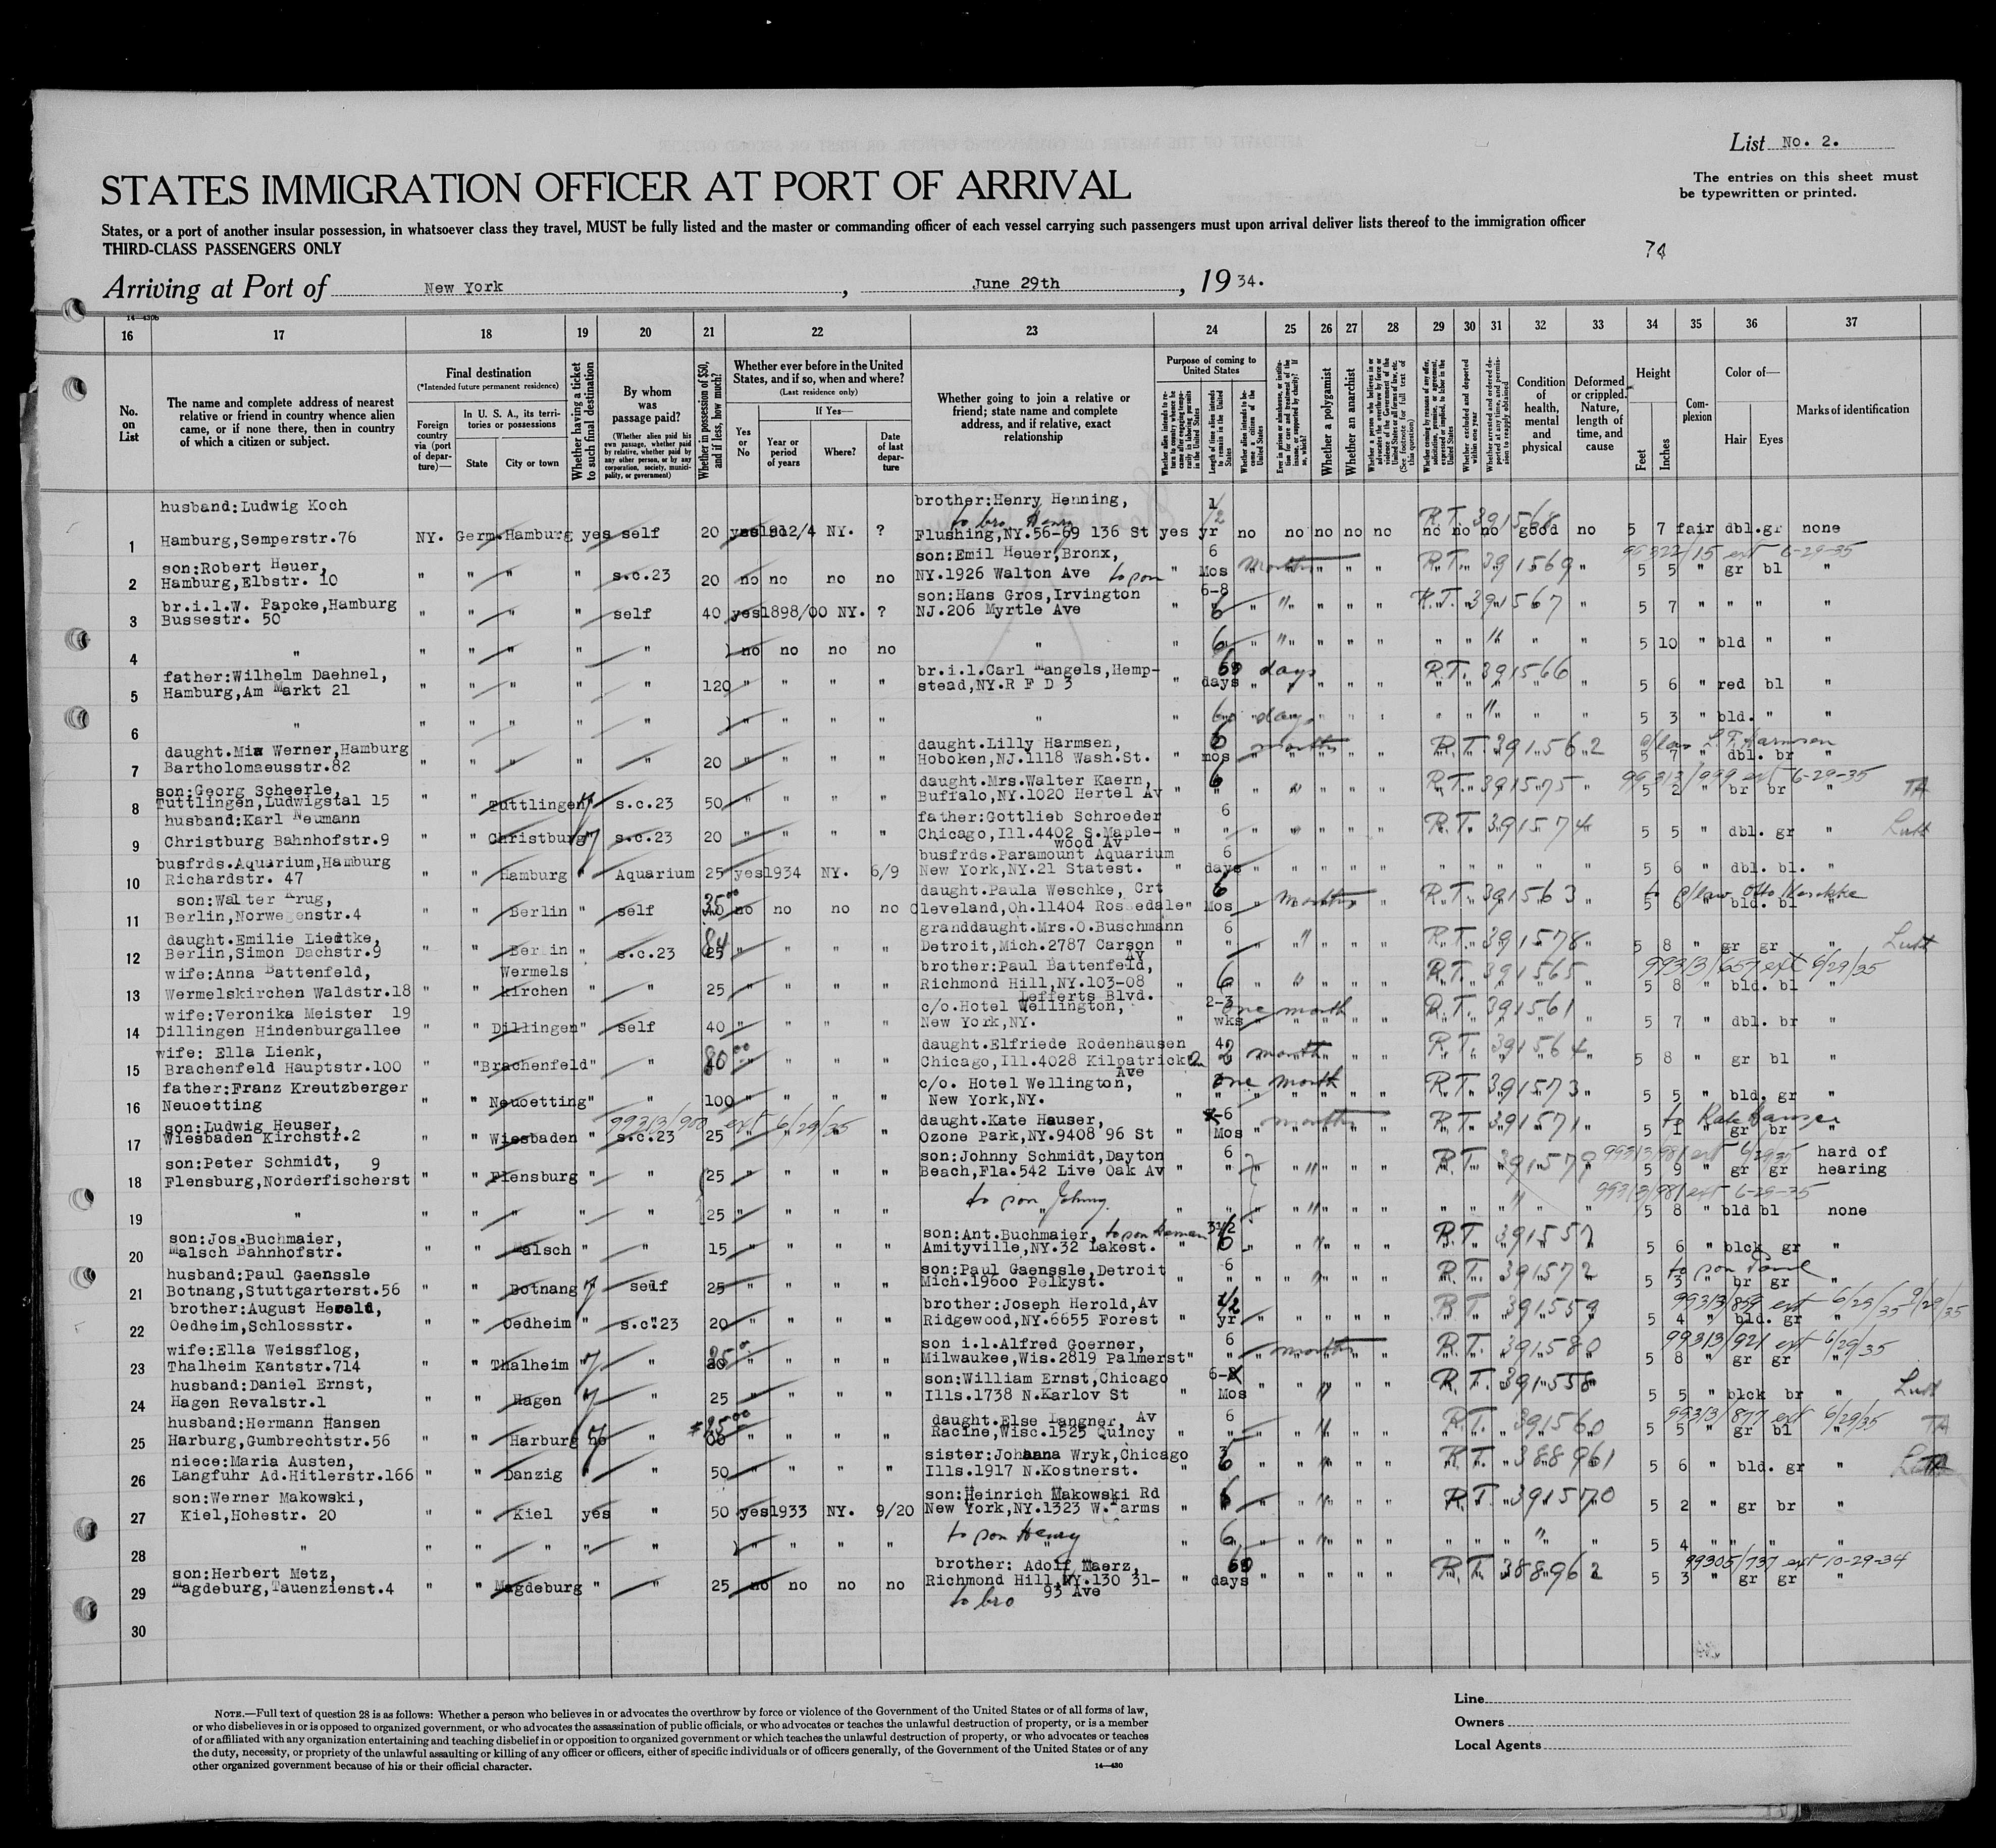 List No. 2.
STATES IMMIGRATION OFFICER AT PORT OF ARRIVAL
The entries on this sheet must
be typewritten or printed.
States, or a port of another insular possession, in whatsoever class they travel, MUST be fully listed and the master or commanding officer of each vessel carrying such passengers must upon arrival deliver lists thereof to the immigration officer
THIRD-CLASS PASSENGERS ONLY
74
Arriving at Port of New York, June 29th, 1934.
14—430b
16 17 18 19 20 21 22 23 24 25 26 27 28 29 30 31 32 33 34 35 36 37
No. on List
The name and complete address of nearest relative or friend in country whence alien came, or if none there, then in country of which a citizen or subject.
Final destination
(*Intended future permanent residence)
Foreign country via (port of departure)—
In U. S. A., its territories or possessions
State
City or town
Whether having a ticket to such final destination
By whom was passage paid?
(Whether alien paid his own passage, whether paid by relative, whether paid by any other person, or by any corporation, society, municipality, or government)
Whether in possession of $50, and if less, how much?
Whether ever before in the United States, and if so, when and where?
(Last residence only)
Yes or No
If Yes—
Year or period of years
Where?
Date of last departure
Whether going to join a relative or friend; state name and complete address, and if relative, exact relationship
Purpose of coming to United States
Length of time alien intends to remain in the United States
Whether alien intends to become a citizen of the United States
Whether a polygamist
Whether an anarchist
Condition of health, mental and physical
Deformed or crippled. Nature, length of time, and cause
Height
Feet
Inches
Complexion
Color of—
Hair
Eyes
Marks of identification
husband:Ludwig Koch brother:Henry Henning, 1
to bro Henry R.T. 391568
1 Hamburg,Semperstr.76 NY. Germ. Hamburg yes self 20 yes 1912/4 NY. ? Flushing,NY.56-69 136 St yes yr no no no no no no no no good no 5 7 fair dbl.gr none
son:Robert Heuer, son:Emil Heuer,Bronx, 6 months R.T. 391569 99322/15 ext 6-29-35
2 Hamburg,Elbstr. 10 " " " " s.c.23 20 no no no no NY.1926 Walton Ave to son " Mos 5 5 " gr bl "
br.i.l.W. Papcke,Hamburg son:Hans Gros,Irvington 6-8 R.T. 391567
3 Bussestr. 50 " " " " self 40 yes 1898/00 NY. ? NJ.206 Myrtle Ave " 6 5 7 " " " "
4 " " " " " " no no no no " " 6 5 10 " bld " "
father:Wilhelm Daehnel, br.i.l.Carl Mangels,Hemp- 60 days R.T. 391566
5 Hamburg,Am Markt 21 " " " " " 120 " " " " stead,NY.R F D 3 " days 5 6 " red bl "
6 " " " " " " " " " " " " days 5 3 " bld. " "
daught.Mia Werner,Hamburg daught.Lilly Harmsen, 6 months R.T. 391562
7 Bartholomaeusstr.82 " " " " " 20 " " " " Hoboken,NJ.1118 Wash.St. " mos 5 7 " dbl. br "
son:Georg Scheerle, daught.Mrs.Walter Kaern, 6 R.T. 391575 99313/999 ext 6-29-35
8 Tuttlingen,Ludwigstal 15 " " Tuttlingen s.c.23 50 " " " " Buffalo,NY.1020 Hertel Av " " 5 2 " br br " TA
husband:Karl Neumann father:Gottlieb Schroeder 6 R.T. 391574
9 Christburg Bahnhofstr.9 " " Christburg s.c.23 20 " " " " Chicago,Ill.4402 S.Maple- " " 5 5 " dbl. gr "
wood Av
busfrds.Aquarium,Hamburg busfrds.Paramount Aquarium 6
10 Richardstr. 47 " " Hamburg " Aquarium 25 yes 1934 NY. 6/9 New York,NY.21 Statest. " days 5 6 " dbl. bl. "
son:Walter Krug, 35 00 daught.Paula Weschke, Crt 6 months R.T. 391563 to s/law Otto Weschke
11 Berlin,Norwegenstr.4 " " Berlin " self no no no no Cleveland,Oh.11404 Rossedale " Mos 5 6 " bld. bl "
daught.Emilie Liedtke, 84 granddaught.Mrs.O.Buschmann 6 R.T. 391578
12 Berlin,Simon Dachstr.9 " " Berlin " s.c.23 25 " " " " Detroit,Mich.2787 Carson " " 5 8 " gr gr "
Av
wife:Anna Battenfeld, Wermels brother:Paul Battenfeld, R.T. 391565 99313/657 ext 6/29/35
13 Wermelskirchen Waldstr.18 " " kirchen " " 25 " " " " Richmond Hill,NY.103-08 " 6 5 8 " bld. bl "
Lefferts Blvd.
wife:Veronika Meister 19 c/o.Hotel Wellington, 2-3 one month R.T. 391561
14 Dillingen Hindenburgallee " " Dillingen " self 40 " " " " New York,NY. " wks 5 7 " dbl. br "
wife: Ella Lienk, 80 00 daught.Elfriede Rodenhausen 4 2 months R.T. 391564
15 Brachenfeld Hauptstr.100 " " Brachenfeld " " " " " " Chicago,Ill.4028 Kilpatrick 5 8 " gr bl "
Ave
father:Franz Kreutzberger c/o. Hotel Wellington, one month R.T. 391573
16 Neuoetting " " Neuoetting " " 100 " " " " New York,NY. " " 5 5 " bld. gr "
son:Ludwig Heuser, 99313/900 ext 6/29/35 daught.Kate Hauser, 6 months R.T. 391571 to Kate Hauser
17 Wiesbaden Kirchstr.2 " " Wiesbaden " s.c.23 25 " " " " Ozone Park,NY.9408 96 St " Mos 5 1 " gr br "
son:Peter Schmidt, 9 son:Johnny Schmidt,Dayton 6 R.T. 391579 99313/981 ext 6/29/35 hard of
18 Flensburg,Norderfischerst " " Flensburg " " 25 " " " " Beach,Fla.542 Live Oak Av " " 5 9 " gr gr hearing
to son Johnny 99313/981 ext 6-29-35
19 " " " " " " 25 " " " " " " 5 8 " bld bl none
son:Jos.Buchmaier, son:Ant.Buchmaier, R.T. 391557
20 Malsch Bahnhofstr. " " Malsch " " 15 " " " " Amityville,NY.32 Lakest. " 6 5 6 " blck gr "
husband:Paul Gaenssle son:Paul Gaenssle,Detroit 6 R.T. 391572 to son Paul
21 Botnang,Stuttgarterst.56 " " Botnang self 25 " " " " Mich.19600 Pelkyst. " " 5 3 " br gr "
brother:August Herold, brother:Joseph Herold,Av 1/2 R.T. 391559 99313/859 ext 6/29/35 9/29/35
22 Oedheim,Schlossstr. " " Oedheim " s.c.23 20 " " " " Ridgewood,NY.6655 Forest " yr 5 4 " bld. gr "
wife:Ella Weissflog, son i.l.Alfred Goerner, 6 months R.T. 391580 99313/921 ext 6/29/35
23 Thalheim Kantstr.714 " " Thalheim " " " " " " Milwaukee,Wis.2819 Palmerst " " 5 8 " gr gr "
husband:Daniel Ernst, son:William Ernst,Chicago 6-8 R.T. 391558
24 Hagen Revalstr.1 " " Hagen " 25 " " " " Ills.1738 N.Karlov St " Mos 5 5 " blck br "
husband:Hermann Hansen daught.Else Langner, Av 6 R.T. 391560 99313/877 ext 6/29/35
25 Harburg,Gumbrechtstr.56 " " Harburg no " " " " " Racine,Wisc.1525 Quincy " " 5 5 " gr bl " TA
niece:Maria Austen, sister:Johanna Wryk,Chicago R.T. 388961
26 Langfuhr Ad.Hitlerstr.166 " " Danzig " " 50 " " " " Ills.1917 N.Kostnerst. " 6 5 6 " bld. gr "
son:Werner Makowski, son:Heinrich Makowski Rd 6 R.T. 391570
27 Kiel,Hohestr. 20 " " Kiel yes " 50 yes 1933 NY. 9/20 New York,NY.1323 W.Farms " " 5 2 " gr br "
to son Henry
28 " " " " " " " " " " " " 6 5 4 " " " "
son:Herbert Metz, brother: Adolf Maerz, 60 R.T. 388962 99305/737 ext 10-29-34
29 Magdeburg,Tauenzienst.4 " " Magdeburg " " 25 no no no no Richmond Hill,NY.130 31- " days 5 3 " gr gr "
to bro 93 Ave
30
NOTE.—Full text of question 28 is as follows: Whether a person who believes in or advocates the overthrow by force or violence of the Government of the United States or of all forms of law,
or who disbelieves in or is opposed to organized government, or who advocates the assassination of public officials, or who advocates or teaches the unlawful destruction of property, or is a member
of or affiliated with any organization entertaining and teaching disbelief in or opposition to organized government or which teaches the unlawful destruction of property, or who advocates or teaches
the duty, necessity, or propriety of the unlawful assaulting or killing of any officer or officers, either of specific individuals or of officers generally, of the Government of the United States or of any
other organized government because of his or their official character.
14—430
Line
Owners
Local Agents